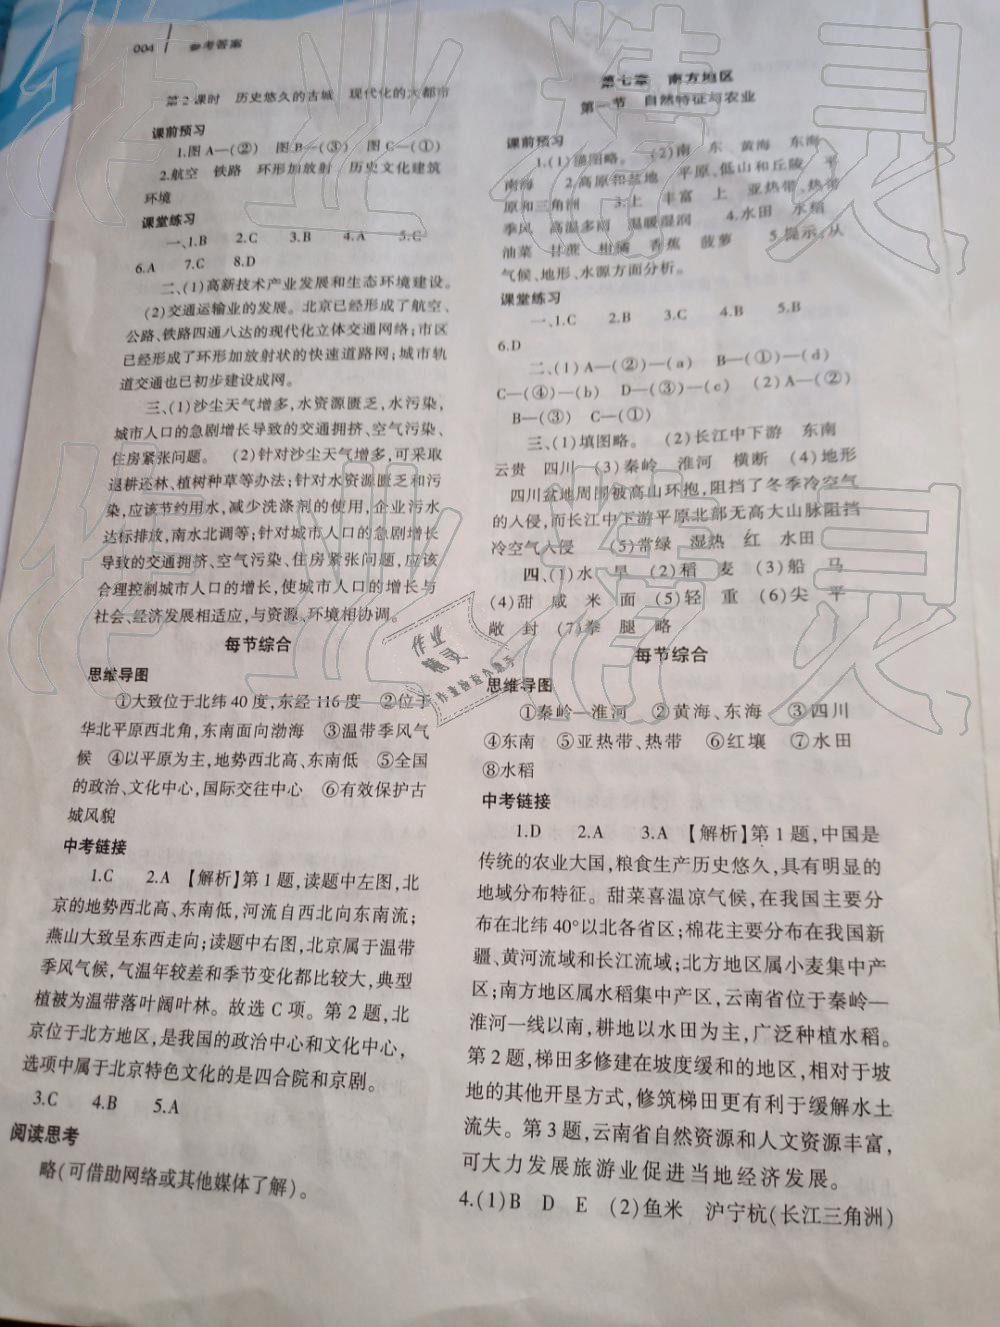 004 参考答案
第2课时 历史悠久的古城 现代化的大都市
课前预习
1.图A—(②) 图B—(③) 图C—(①)
2.航空 铁路 环形加放射 历史文化建筑
环境
课堂练习
一、1.B 2.C 3.B 4.A 5.C
6.A 7.C 8.D
二、(1)高新技术产业发展和生态环境建设。
(2)交通运输业的发展。北京已经形成了航空、
公路、铁路四通八达的现代化立体交通网络;市区
已经形成了环形加放射状的快速道路网;城市轨
道交通也已初步建设成网。
三、(1)沙尘天气增多,水资源匮乏,水污染,
城市人口的急剧增长导致的交通拥挤、空气污染、
住房紧张问题。 (2)针对沙尘天气增多,可采取
退耕还林、植树种草等办法;针对水资源匮乏和污
染,应该节约用水,减少洗涤剂的使用,企业污水
达标排放,南水北调等;针对城市人口的急剧增长
导致的交通拥挤、空气污染、住房紧张问题,应该
合理控制城市人口的增长,使城市人口的增长与
社会、经济发展相适应,与资源、环境相协调。
每节综合
思维导图
①大致位于北纬40度,东经116度 ②位于
华北平原西北角,东南面向渤海 ③温带季风气
候 ④以平原为主,地势西北高、东南低 ⑤全国
的政治、文化中心,国际交往中心 ⑥有效保护古
城风貌
中考链接
1.C 2.A 【解析】第1题,读题中左图,北
京的地势西北高、东南低,河流自西北向东南流;
燕山大致呈东西走向;读题中右图,北京属于温带
季风气候,气温年较差和季节变化都比较大,典型
植被为温带落叶阔叶林。故选C项。第2题,北
京位于北方地区,是我国的政治中心和文化中心,
选项中属于北京特色文化的是四合院和京剧。
3.C 4.B 5.A
阅读思考
略(可借助网络或其他媒体了解)。
第七章 南方地区
第一节 自然特征与农业
课前预习
1.(1)描图略。 (2)南 东 黄海 东海
南海 2.高原和盆地 平原、低山和丘陵 平
原和三角洲 3.上 丰富 上 亚热带、热带
季风 高温多雨 温暖湿润 4.水田 水稻
油菜 甘蔗 柑橘 香蕉 菠萝 5.提示,从
气候、地形、水源方面分析。
课堂练习
一、1.C 2.B 3.C 4.B 5.B
6.D
二、(1)A—(②)—(a) B—(①)—(d)
C—(④)—(b) D—(③)—(c) (2)A—(②)
B—(③) C—(①)
三、(1)填图略。 (2)长江中下游 东南
云贵 四川 (3)秦岭 淮河 横断 (4)地形
四川盆地周围被高山环抱,阻挡了冬季冷空气
的入侵,而长江中下游平原北部无高大山脉阻挡
冷空气入侵 (5)常绿 湿热 红 水田
四、(1)水 旱 (2)稻 麦 (3)船 马
(4)甜 咸 米 面 (5)轻 重 (6)尖 平
敞 封 (7)拳 腿 略
每节综合
思维导图
①秦岭—淮河 ②黄海、东海 ③四川
④东南 ⑤亚热带、热带 ⑥红壤 ⑦水田
⑧水稻
中考链接
1.D 2.A 3.A 【解析】第1题,中国是
传统的农业大国,粮食生产历史悠久,具有明显的
地域分布特征。甜菜喜温凉气候,在我国主要分
布在北纬40°以北各省区;棉花主要分布在我国新
疆、黄河流域和长江流域;北方地区属小麦集中产
区;南方地区属水稻集中产区,云南省位于秦岭—
淮河一线以南,耕地以水田为主,广泛种植水稻。
第2题,梯田多修建在坡度缓和的地区,相对于坡
地的其他开垦方式,修筑梯田更有利于缓解水土
流失。第3题,云南省自然资源和人文资源丰富,
可大力发展旅游业促进当地经济发展。
4.(1)B D E (2)鱼米 沪宁杭(长江三角洲)
作业精灵
作业精灵
作业
精灵